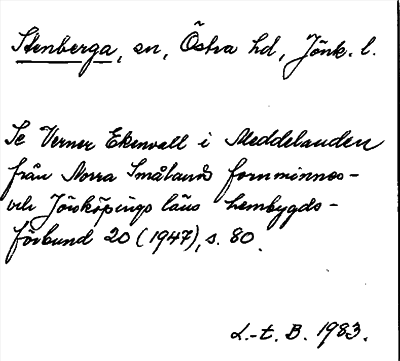 Stenberga, sn, Östra hd, Jönk. l.
Se Verner Ekenvall i Meddelanden
från Norra Smålands fornminnes-
och Jönköpings läns hembygds-
förbund 20 (1947), s. 80.
L.-t. B. 1983.